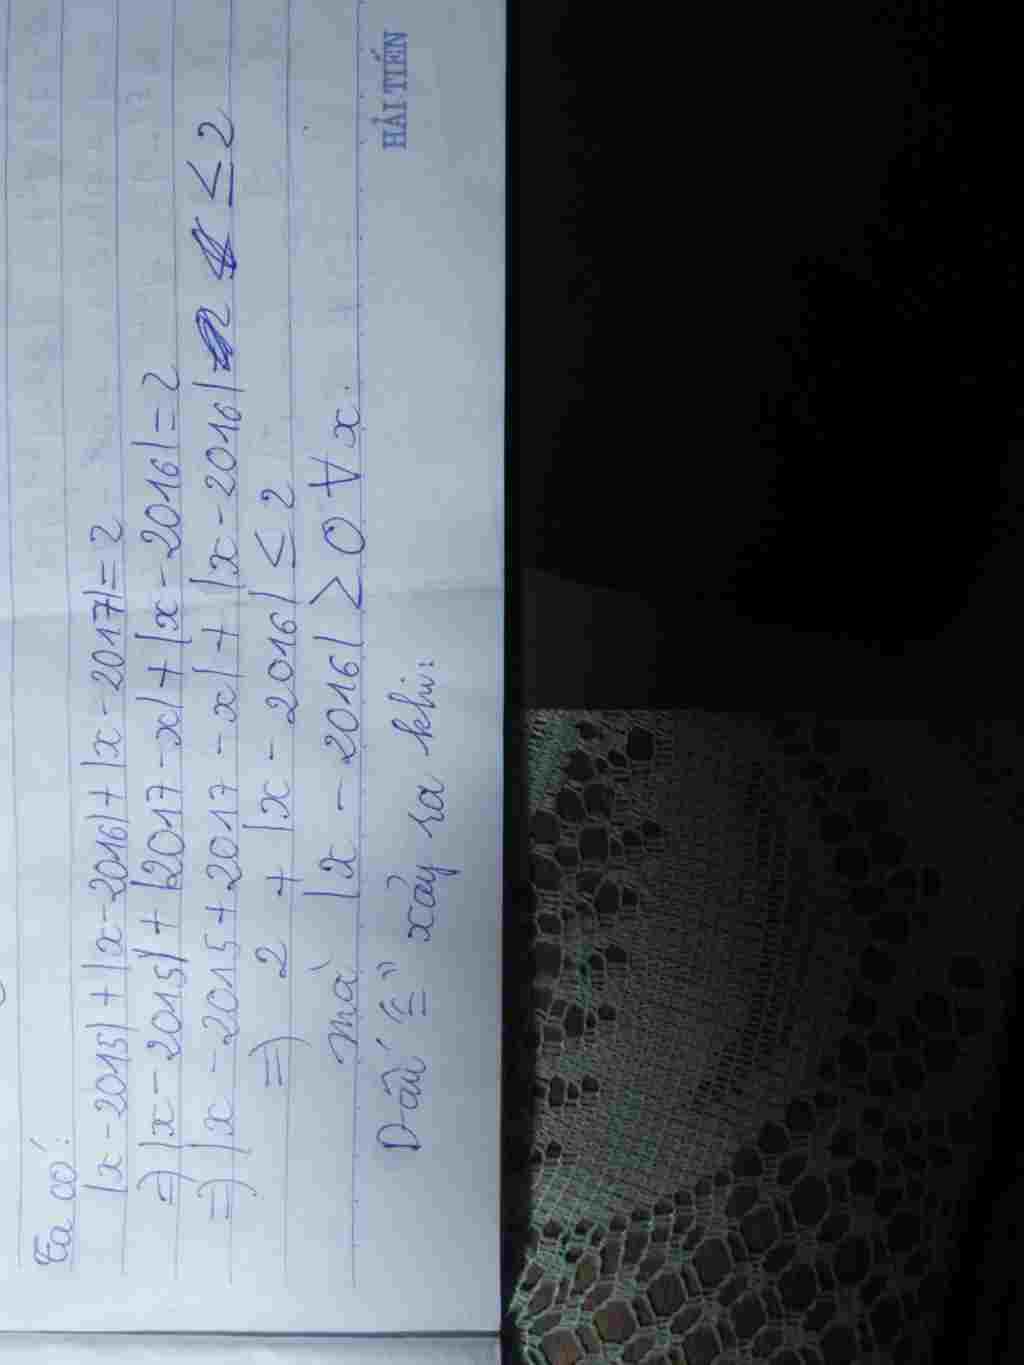 Ta có:
|x-2015|+|x-2016|+|x-2017|=2
=> |x-2015|+|2017-x|+|x-2016|=2
=> |x-2015+2017-x|+|x-2016| ≤ 2
=> 2 + |x-2016| ≤ 2
mà |x-2016| ≥ 0 ∀ x.
Dấu "=" xảy ra khi:
HẢI TIẾN